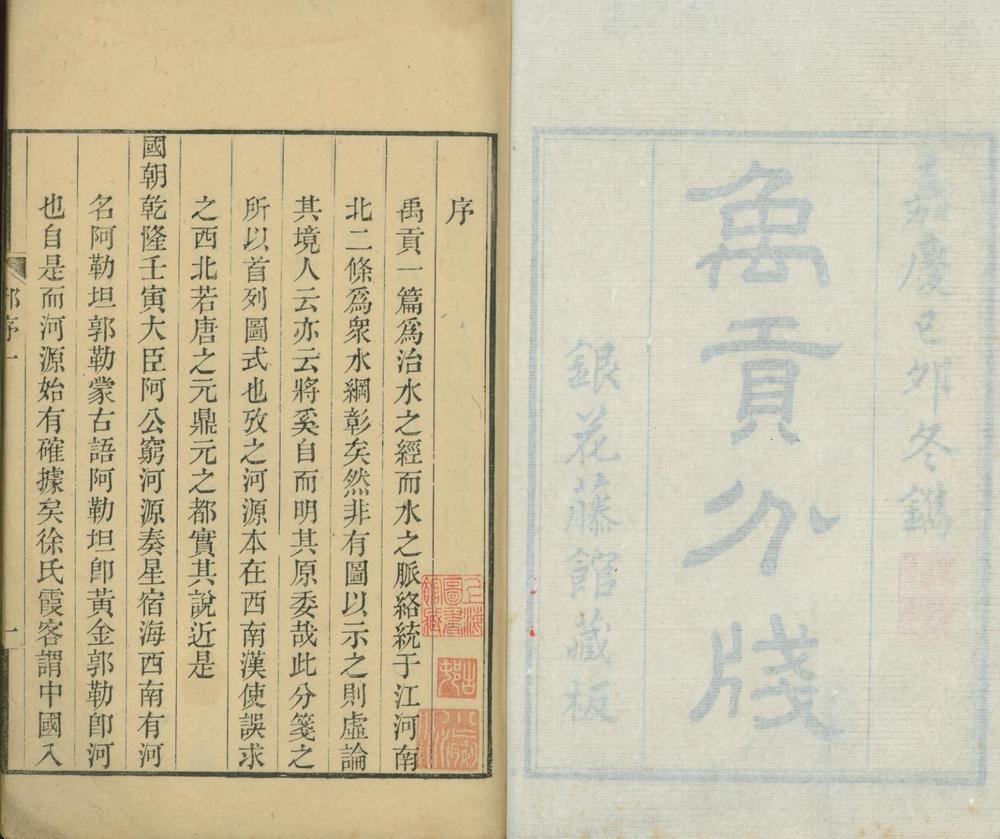 嘉慶己卯冬鐫
禹貢分牋
銀花藤館藏板
序
禹貢一篇爲治水之經而水之脈絡統于江河南
北二條爲衆水綱彰矣然非有圖以示之則虛論
其境人云亦云將奚自而明其原委哉此分箋之
所以首列圖式也攷之河源本在西南漢使誤求
之西北若唐之元鼎元之都實其說近是
國朝乾隆壬寅大臣阿公窮河源奏星宿海西南有河
名阿勒坦郭勒蒙古語阿勒坦卽黃金郭勒卽河
也自是而河源始有確據矣徐氏霞客謂中國入
序一
一
上海圖書館藏